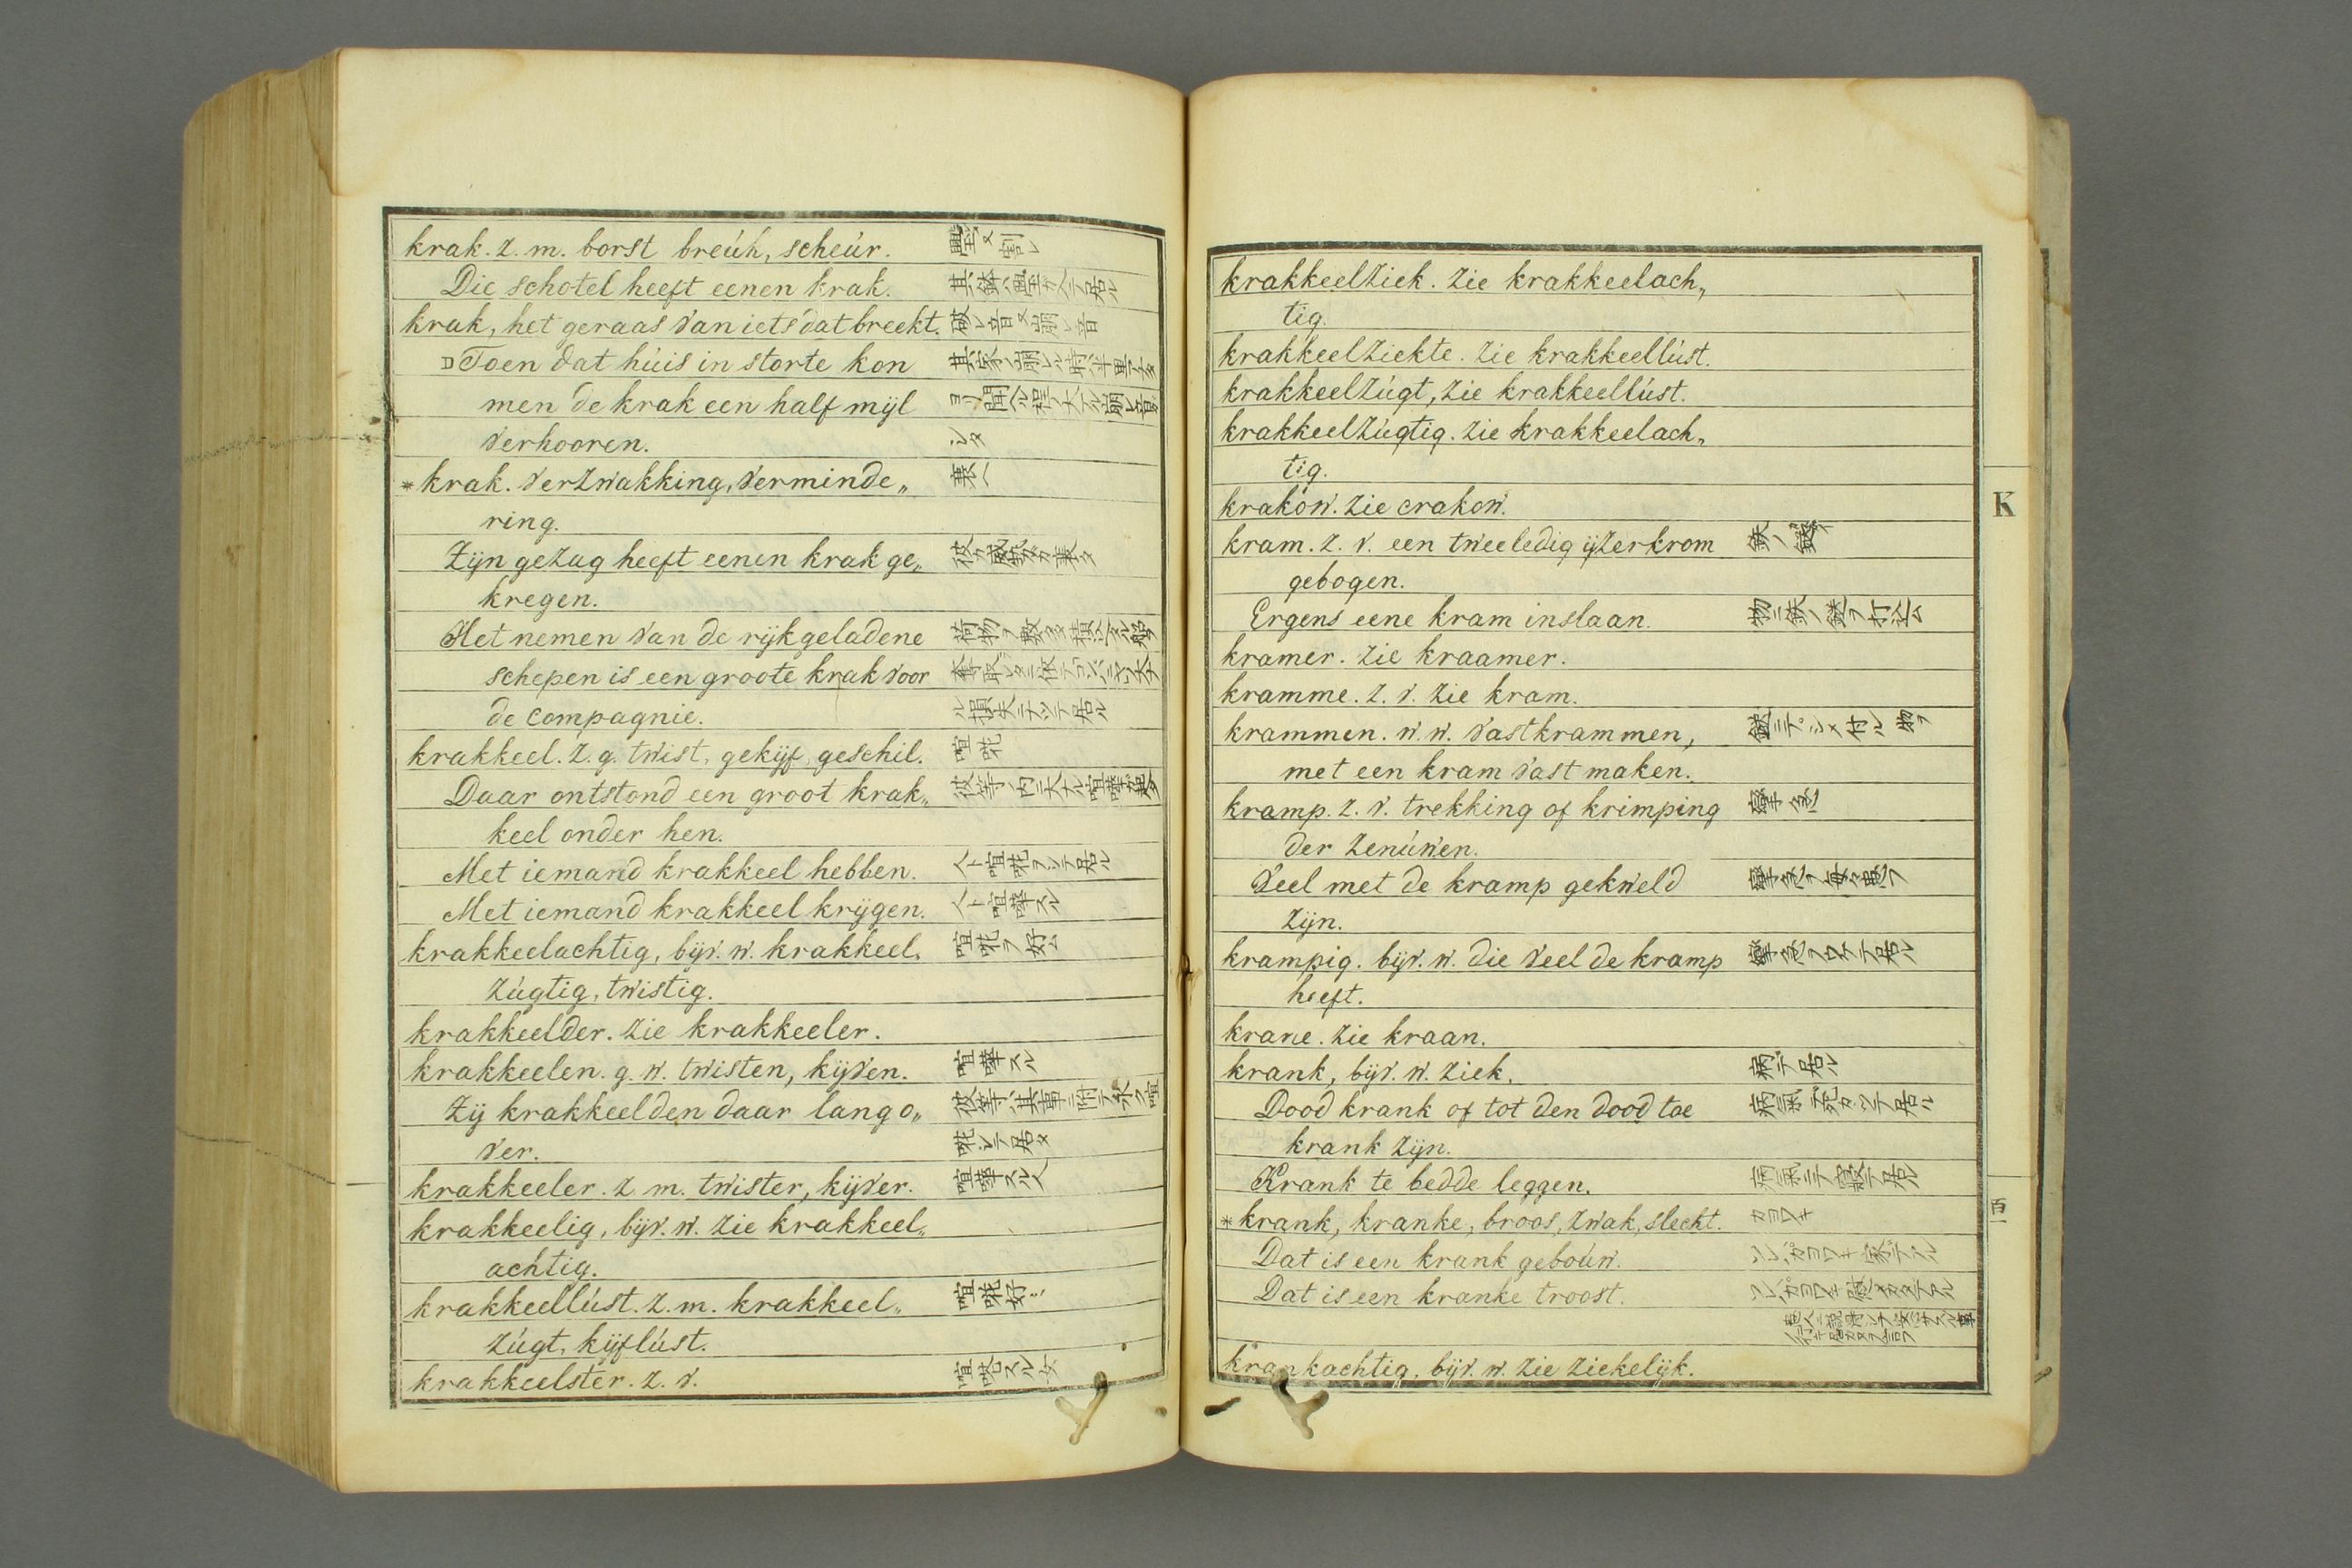 krak. z. m. borst breúk, scheúr. 璺又割レ
Die schotel heeft eenen krak. 其鉢ハ璺カ入テ居ル
krak, het geraas van iets dat breekt. 破レ音又崩レ音
Toen dat húis in storte kon 其家ノ崩レル時半里余
men de krak een half mijl ヨリ聞ヘル程ノ大ナル崩レ音
verhooren. シタ
*krak. verzwakking, verminde„ 衰ヘ
ring.
Zijn gezag heeft eenen krak ge„ 彼カ威勢カ衰タ
kregen.
Het nemen van de rijkgeladene 荷物ヲ数多積込タル船ヲ
schepen is een groote krak voor
de compagnie. ル損失ニナツテ居ル
krakkeel. z. g. twist, gekijf, geschil. 喧𠵅
Daar ontstond een groot krak„ 彼等ノ内ニ大ナル喧嘩カ起タ
keel onder hen.
Met iemand krakkeel hebben. 人ト喧𠵅ヲシテ居ル
Met iemand krakkeel krijgen. 人ト喧嘩スル
krakkeelachtig, bijv. w. krakkeel„ 喧𠵅ヲ好ム
zúgtig, twistig.
krakkeelder. zie krakkeeler.
krakkeelen. g. w. twisten, kijven. 喧嘩スル
Zij krakkeelden daar lang o„ 彼等ハ其事ニ附テ永ク喧
ver. 𠵅シテ居タ
krakkeeler. z. m. twister, kijver. 喧嘩スル人
krakkeelig, bijv. w. zie krakkeel„
achtig.
krakkeellúst. z. m. krakkeel„ 喧𠵅好ミ
zúgt, kijflúst.
krakkeelster. z. v. 喧𠵅スル女
krakkeelziek. zie krakkeelach„
tig.
krakkeelziekte. zie krakkeellúst.
krakkeelzúgt, zie krakkeellúst.
krakkeelzúgtig. zie krakkeelach„
tig.
krakow. zie crakow.
kram. z. v. een tweeledig ijzer krom 鉄ノ鎹
gebogen.
Ergens eene kram inslaan. 物ニ鉄ノ鎹ヲ打込ム
kramer. zie kraamer.
kramme. z. v. zie kram.
krammen. w. w. vastkrammen, 鎹ニテシメ付ル物ヲ
met een kram vast maken.
kramp. z. v. trekking of krimping 攣急
der zenúwen.
Veel met de kramp gekweld 攣急ヲ毎々患フ
zijn.
krampig. bijv. w. die veel de kramp 攣急ヲ病テ居ル
heeft.
krane. zie kraan.
krank, bijv. w. ziek. 病テ居ル
Dood krank of tot den dood toe 病氣テ死カヽツテ居ル
krank zijn.
Krank te bedde leggen. 病氣ニテ寝テ居ル
*krank, kranke, broos, zwak, slecht. カヨワキ
Dat is een krank geboúw. ソレハカヨワキ家テアル
Dat is een kranke troost. ソレハカヨワキ慰メカタテアル
krankachtig. bijv. w. zie ziekelijk.
K
百